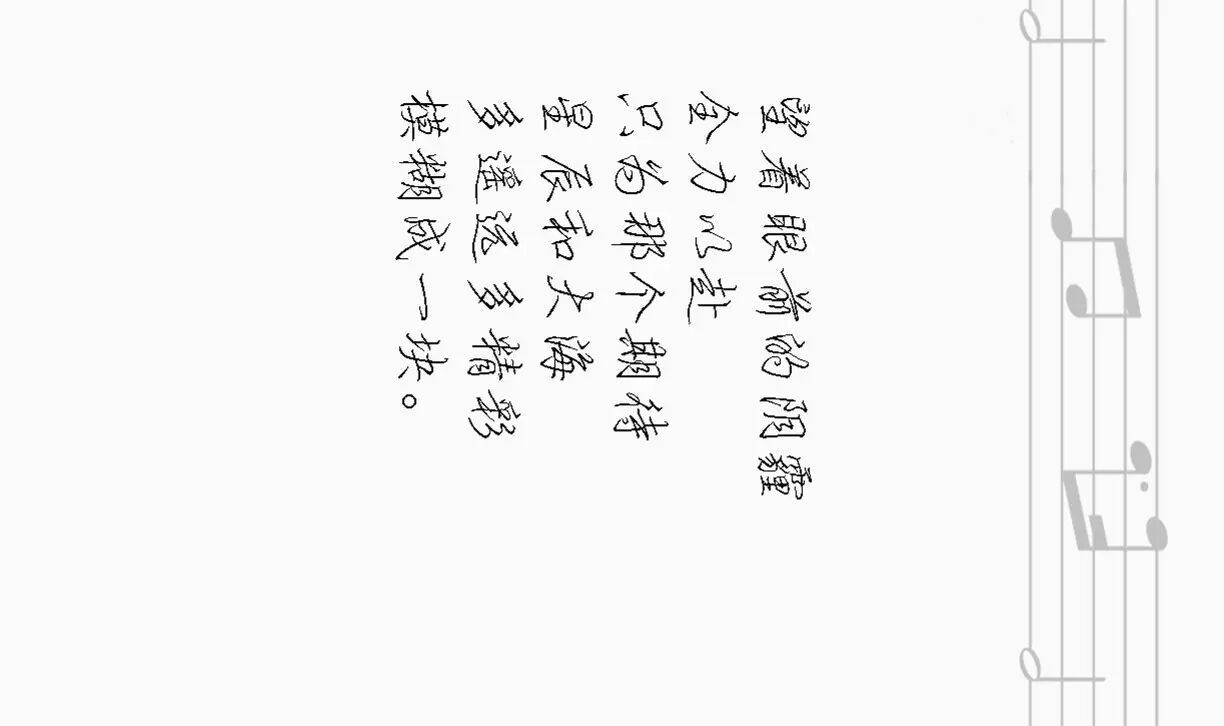 望着眼前的阴霾
全力以赴
只为那个期待
星辰和大海
多遥远多精彩
模糊成一块。